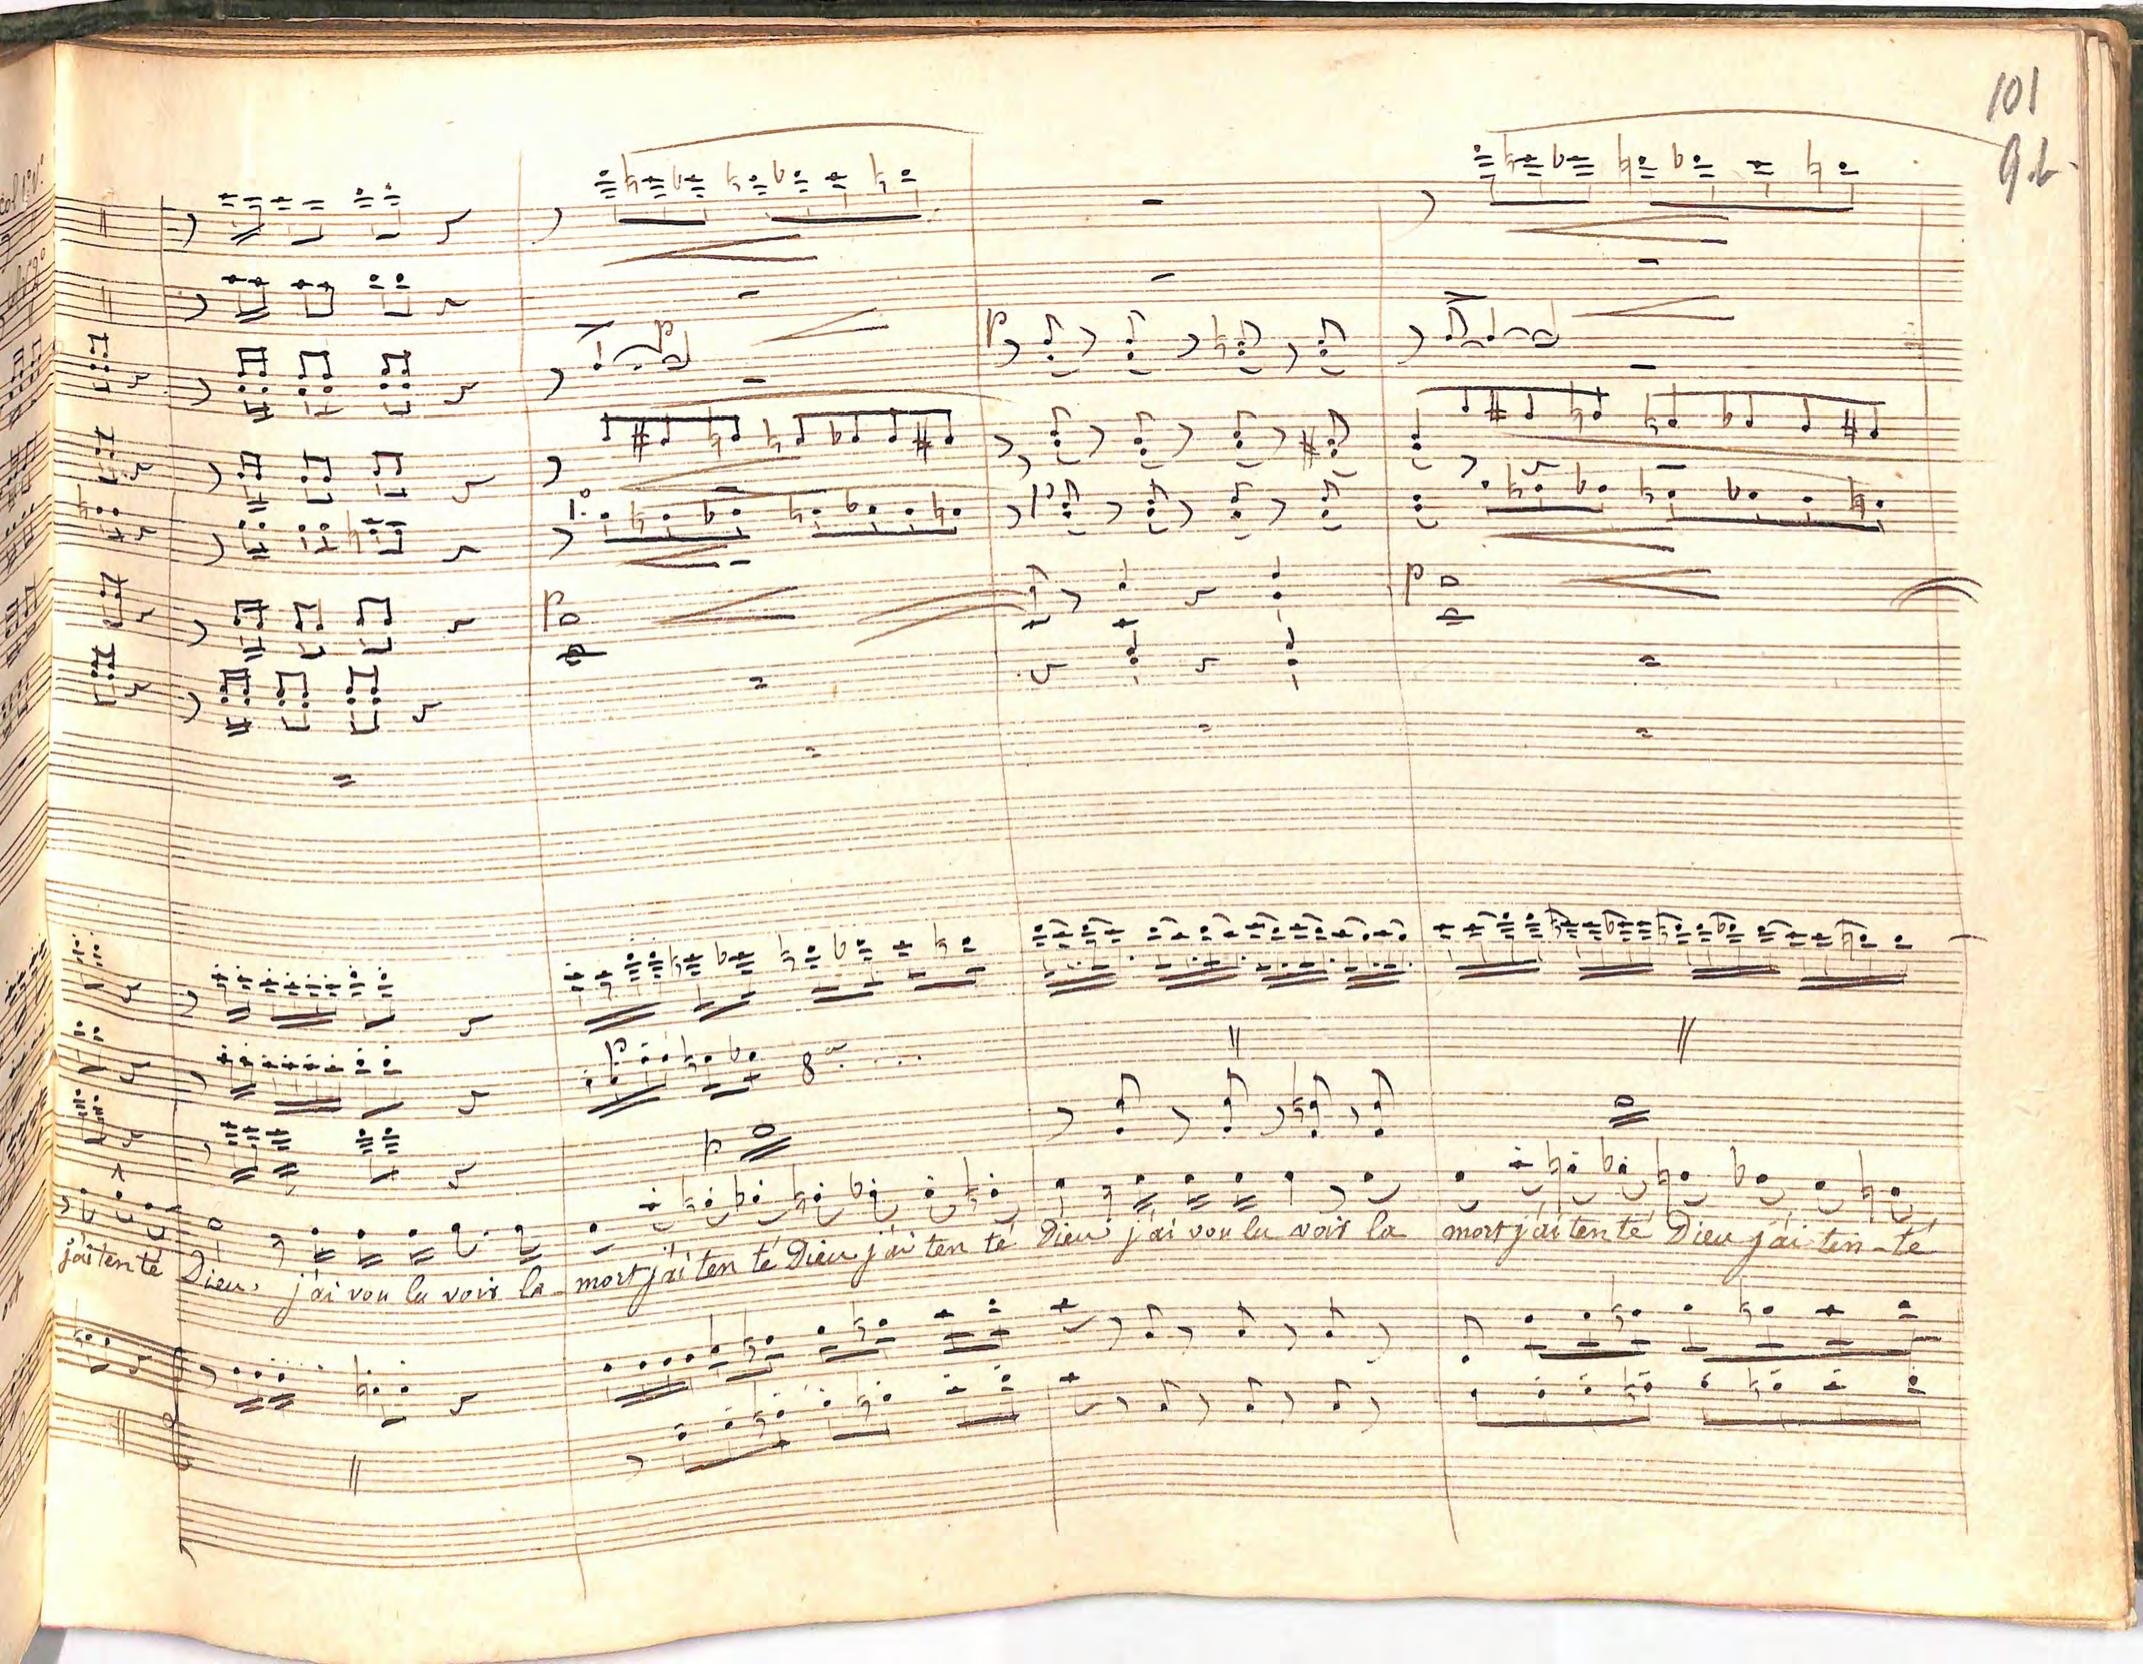 101
col 1º V.º
p
p
p
1º
p
p
p
p
8ª
p
j'ai tenté Dieu. j'ai voulu voir la mort j'ai tenté Dieu j'ai tenté Dieu j'ai voulu voir la mort j'ai tenté Dieu j'ai ten-té